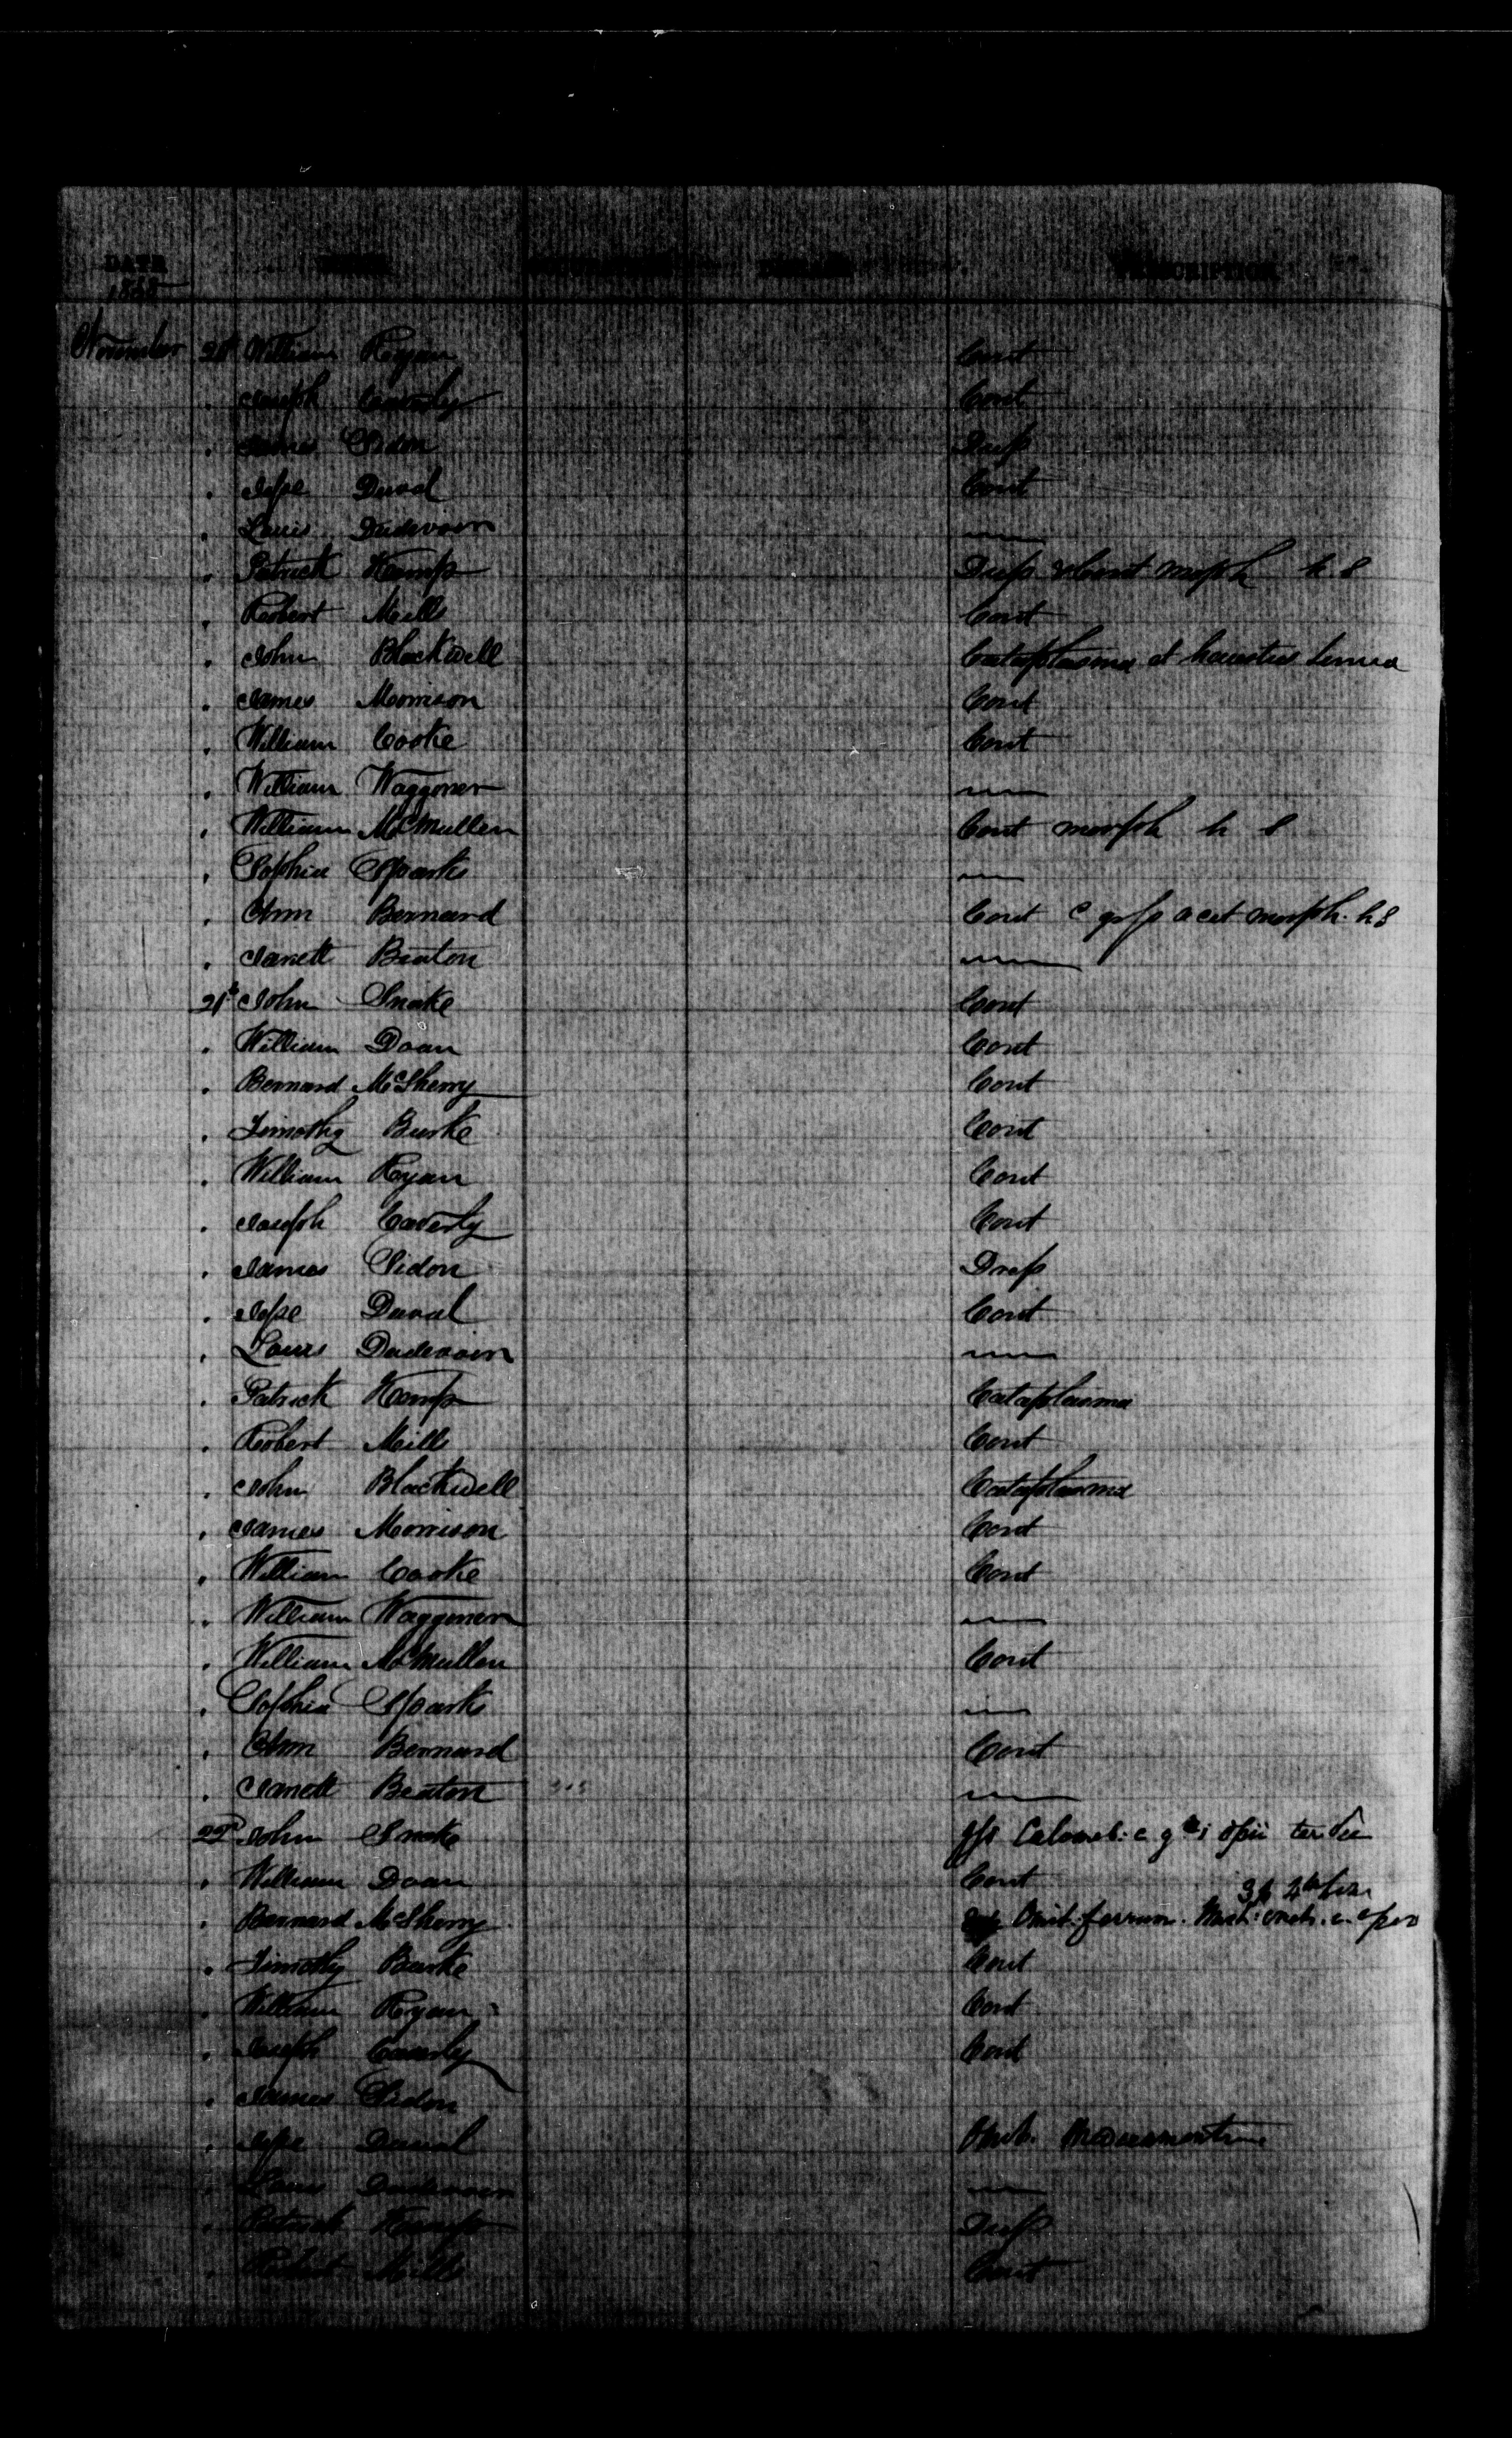 DATE PRESCRIPTION
November 20th William Ryan Cont
Joseph Caverly Cont
James Sidon Drsp
Duval Cont
Louis
Patrick Kemp Cont morph h.s
Robert Mills Cont
John Blackwell Cataplasma et haustus
James Morrison Cont
William Cooke Cont
William Waggoner
William McMullen Cont morph h s
Sophia Sparks
Ann Bernard Cont c acet morph. h s
Janett Beaton
21st John Snake Cont
William Doan Cont
Bernard McSherry Cont
Timothy Burke Cont
William Ryan Cont
Joseph Caverly Cont
James Sidon
Duval Cont
Louis
Patrick Kemp Cataplasma
Robert Mills Cont
John Blackwell Cataplasma
James Morrison Cont
William Cooke Cont
William Waggoner
William McMullen Cont
Sophia Sparks
Ann Bernard Cont
Janett Beaton
22d John Snake Calomel. c opii ter die
William Doan Cont
Bernard McSherry Omit. ferrum.
Timothy Burke Cont
William Ryan Cont
Joseph Caverly Cont
James Sidon
Duval Omit. Medicamentum
Louis
Patrick Kemp
Robert Mills Cont